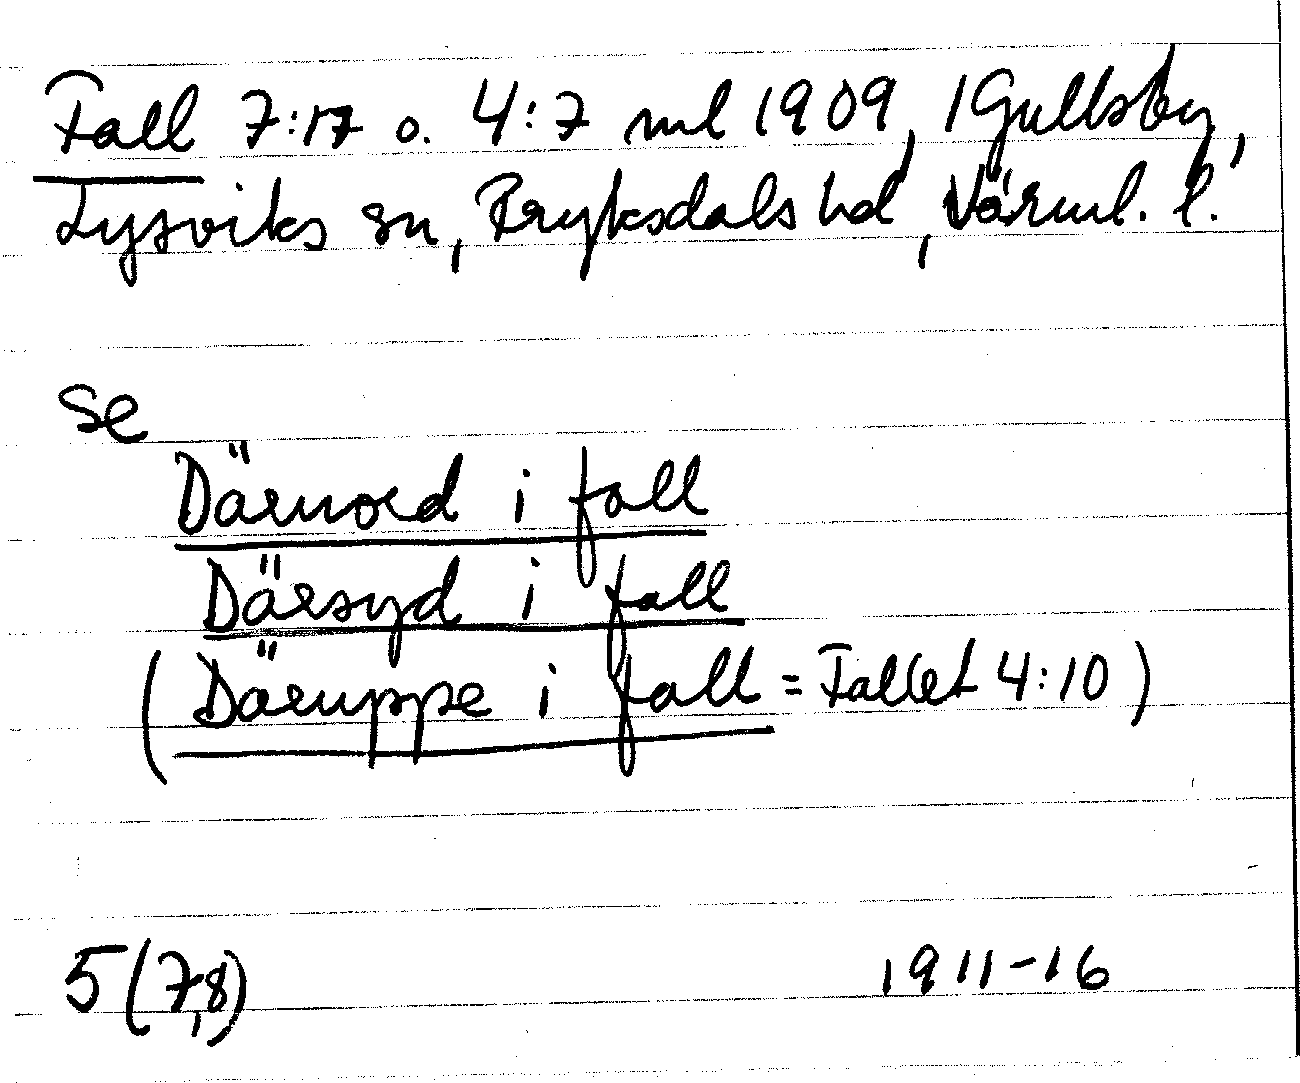 Fall 7:17 o. 4:7 ml 1909, 1 Gullsby,
Lysviks sn, Fryksdals hd, Värml. l.
se
Därnord i fall
Därsyd i fall
(Däruppe i fall = Fallet 4:10)
5(7,8) 1911-16